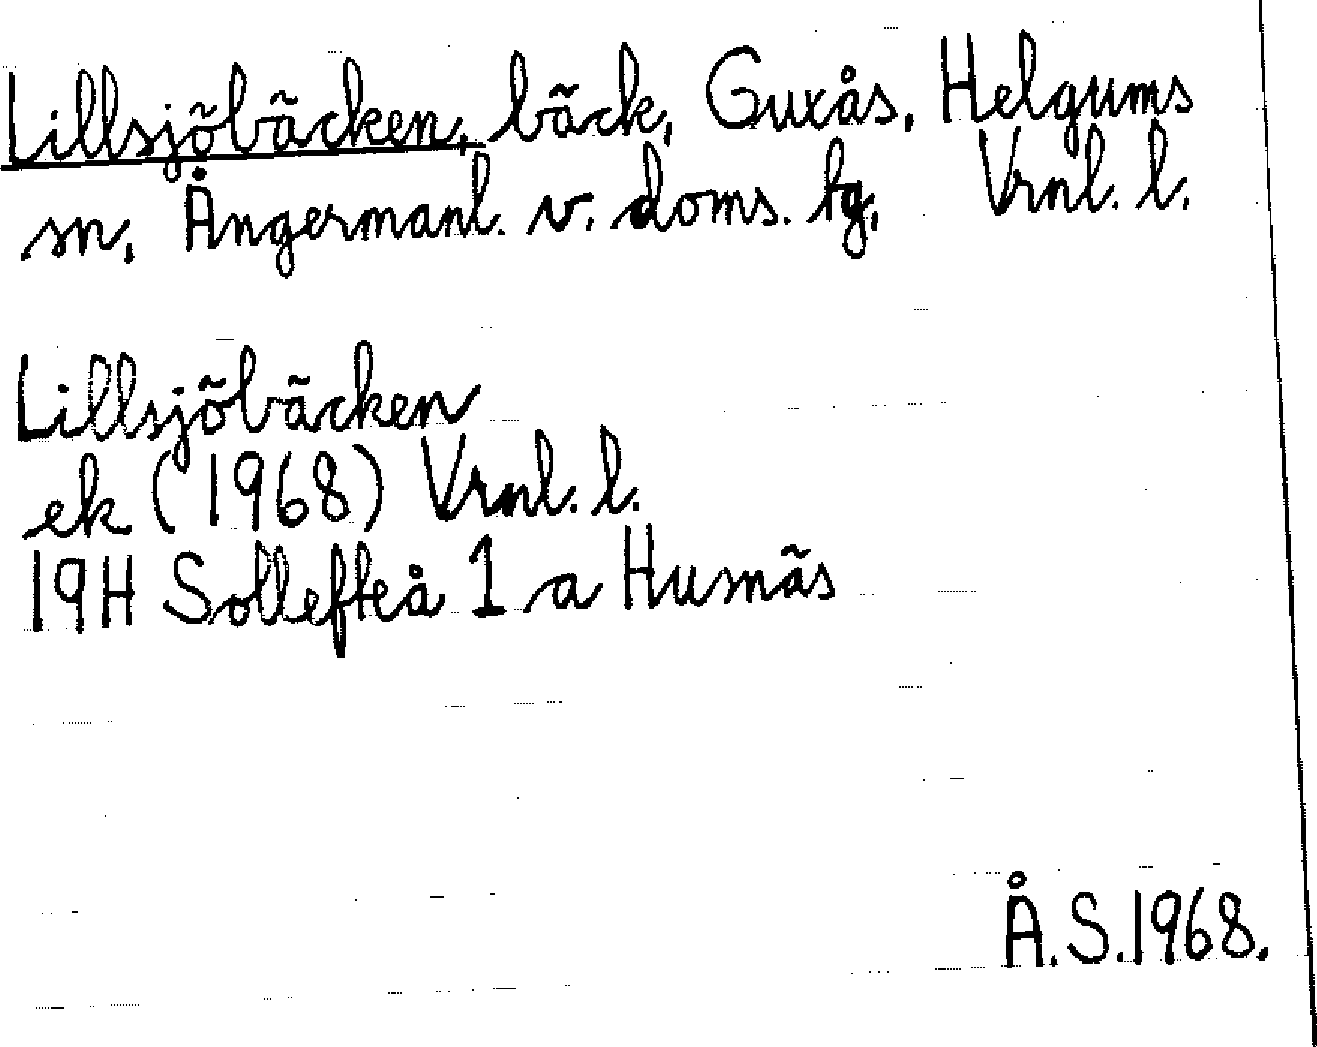 Lillsjöbäcken, bäck, Guxås, Helgums
sn, Ångermanl. v. doms. lg, Vrnl. l.
Lillsjöbäcken
ek (1968) Vrnl. l.
19H Sollefteå 1 a Husnäs
Å.S.1968.